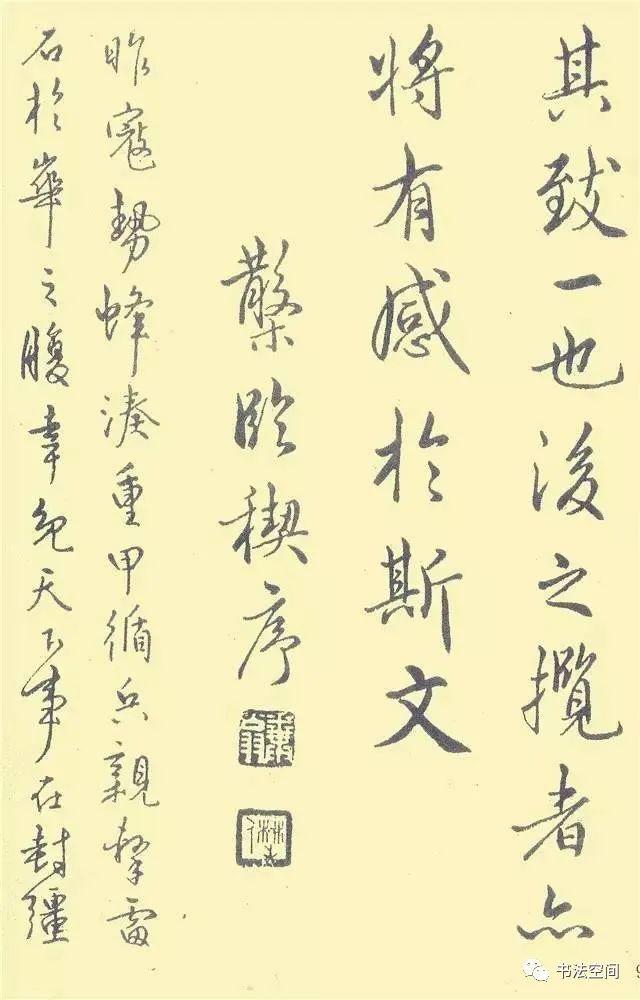 其致一也後之攬者亦
將有感於斯文
散木臨禊序
昨寇勢蜂湊重甲循兵親擊雷
石於華之腹幸免天下事在封疆
书法空间
9